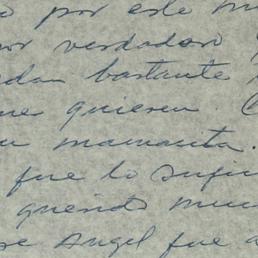 o por este mu
or verdadero
dan bastante
ue quieren. C
u mamacita.
fue lo sufi
querido mu
se Angel fue a